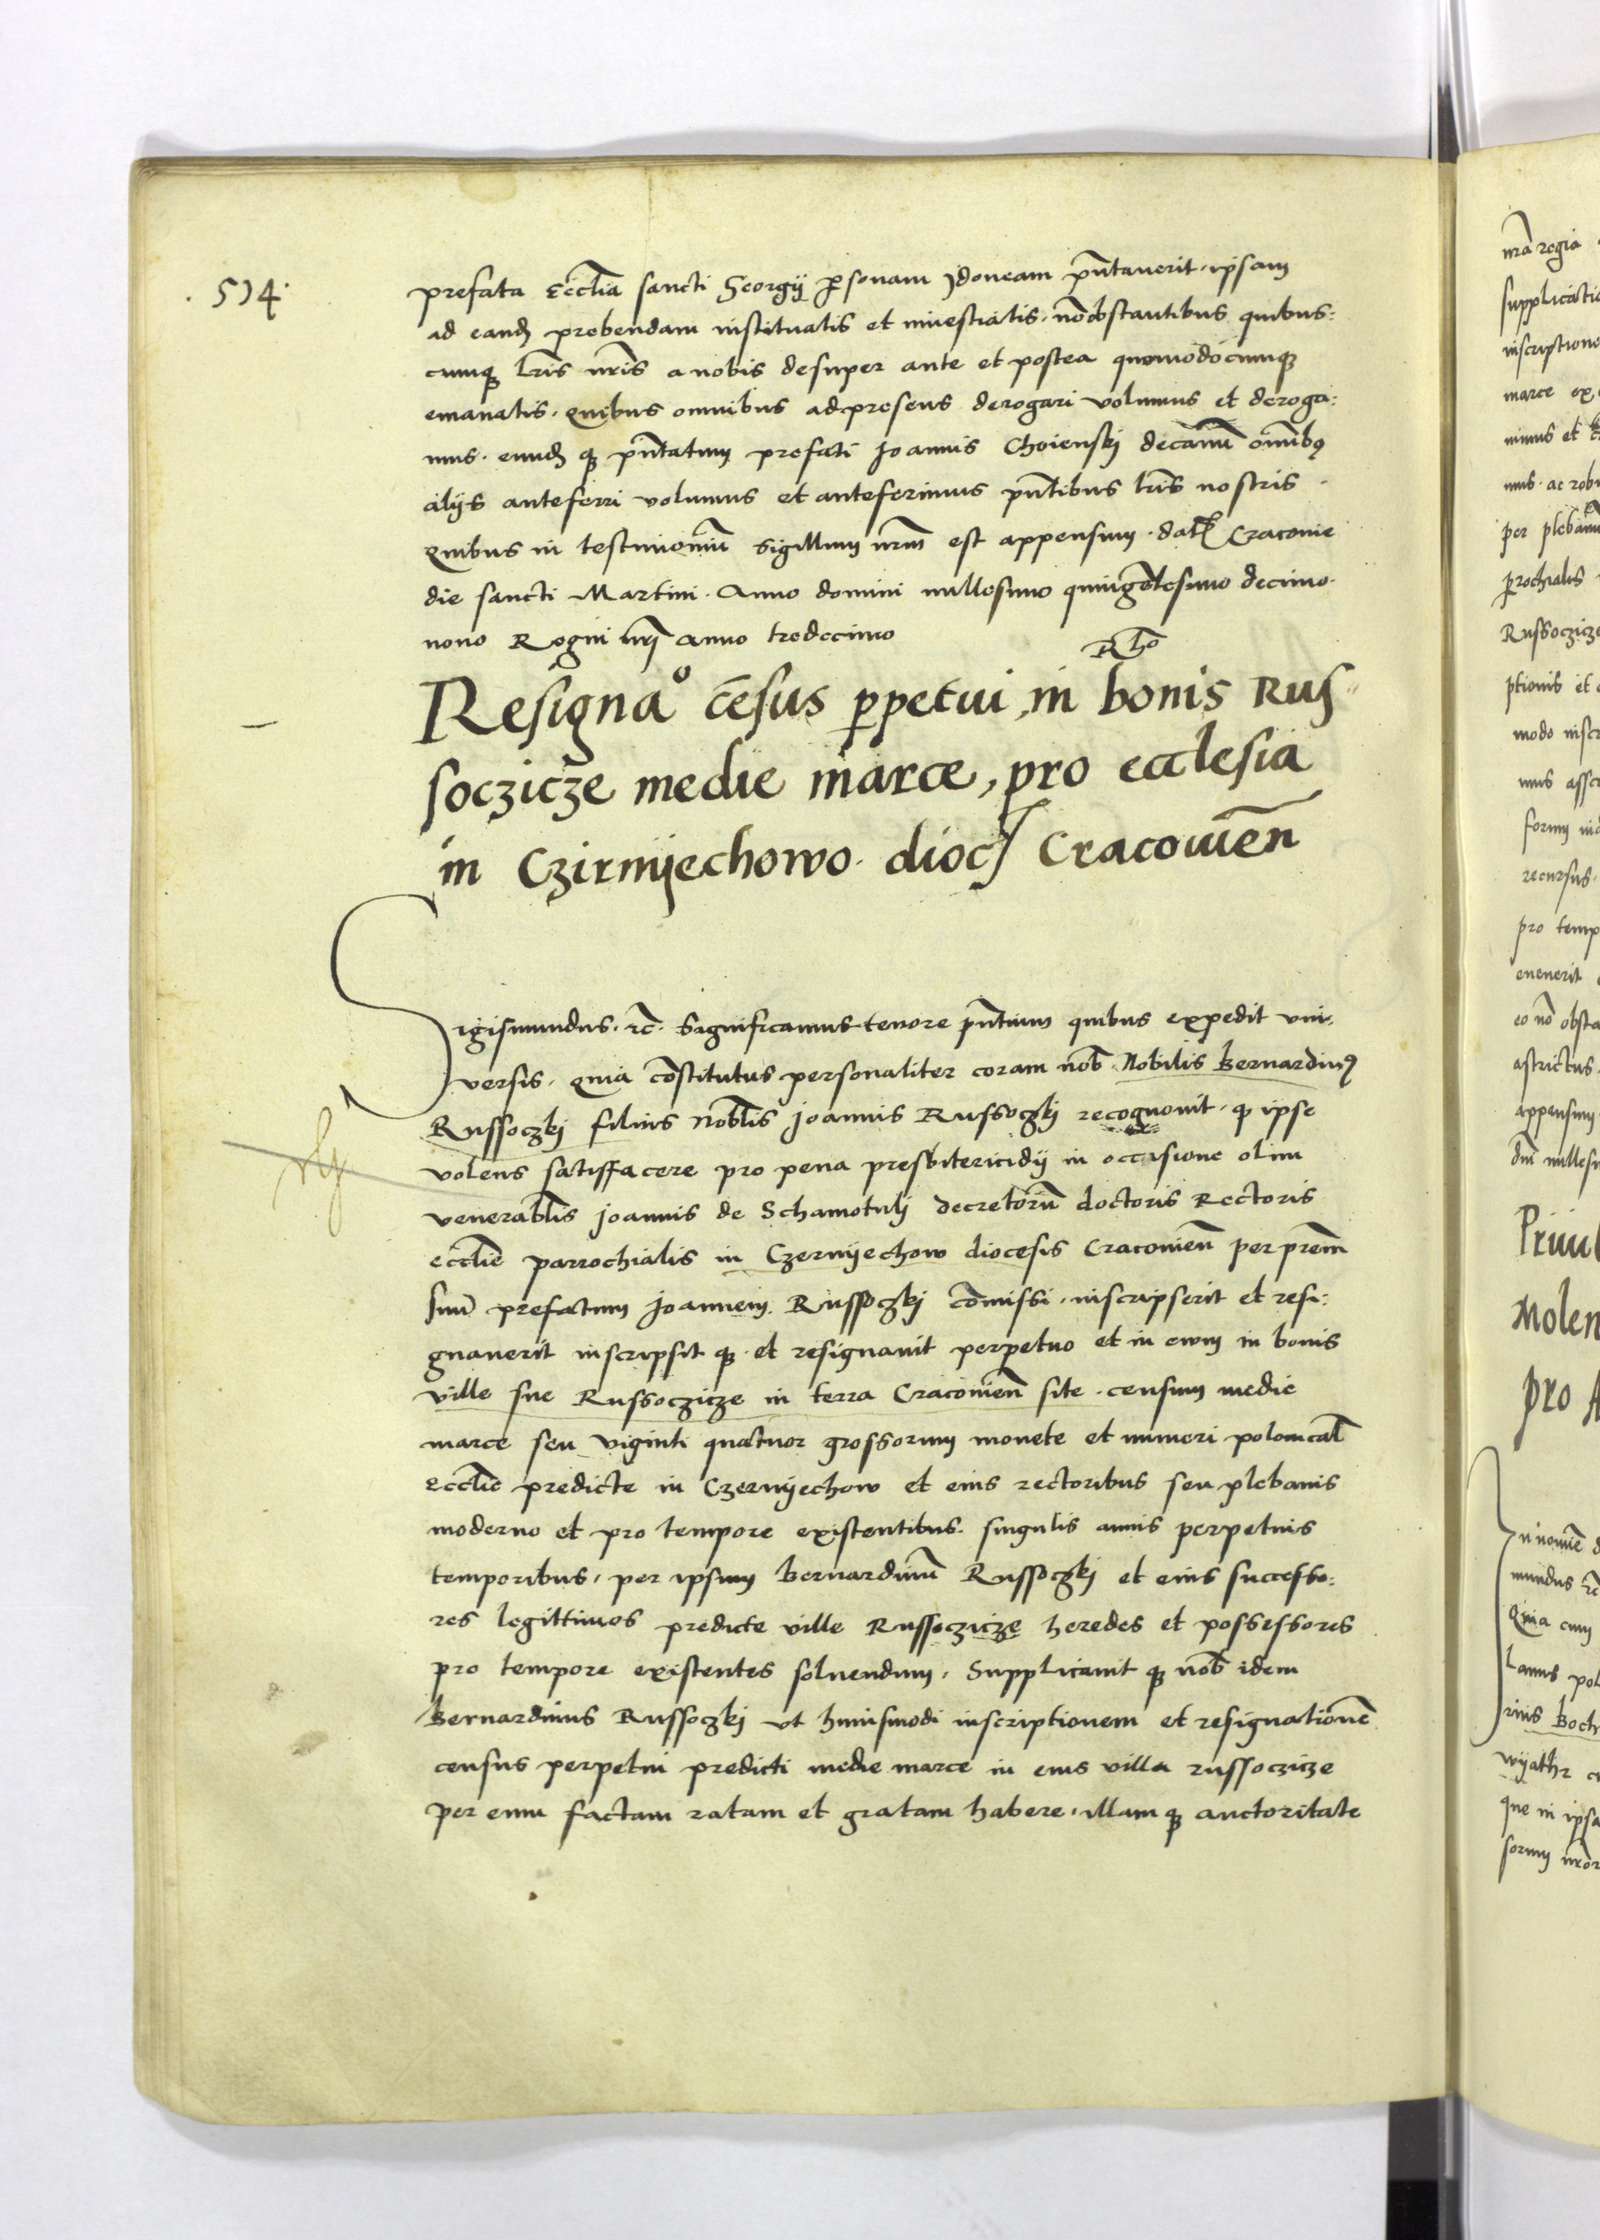 . 514.
prefata Eccłia sancti Georgij personam jdoneam pñtauerit. ipsam
ad eand prebendam instituatis et inuestiatis. nõobstantibus quibus:
cumq lr̃is nr̃is a nobis desuper ante et postea quomodocumq
emanatis. Quibus omnibus adpresens derogari volumus et deroga:
mus. eund q pñtatum prefati joannis Choienskj decanũ om̃ibꝰ
alijs anteferri volumus et anteferimus pñtibus lr̃is nostris.
Quibus in testimoniũ sigillum nr̃m est appensum. dat Cracouie
die sancti Martini. Anno domini millesimo quingẽtesimo decimo
nono Regni nr̃j anno tredecimo
Rho
Resignaᵒ cẽsus ꝑpetui, in bonis Rus
soczicze medie marce, pro ecclesia
in Czirnijechowo. dioc Cracouieñ
Sigismundus. rc̃. Significamus tenore pñtium quibus expedit vni
versis. quia cõstitutus personaliter coram nob̃. Nobilis Bernardinꝰ
Russoczkj filius nobłis joannis Russoczkj recognouit. q ipse
volens satisffacere pro pena presbitericidij in occasione olim
venerabłis joannis de Schamotulj decretorũ doctoris Rectoris
eccłie parrochialis in Czernijechow diocesis Cracouieñ per prem̃
suũ prefatum joannem. Russoczkj cõmissi. inscripserit et resi:
gnauerit inscripsit q. et resignauit perpetuo et in euum in bonis
ville sue Russoczicze in terra Cracouieñ site. censum medie
marce seu viginti quatuor grossorum monete et numeri polonicał
Eccłie predicte in Czernijechow et eius rectoribus seu plebanis
moderno et pro tempore existentibus. singulis annis perpetuis
temporibus. per ipsum Bernardinũ Russoczkj et eius successo:
res legittimos predicte ville Russoczicze heredes et possessores
pro tempore existentes soluendum. Supplicauit q nob̃ idem
Bernardinus Russoczkj vt huiusmodi inscriptionem et resignationẽ
census perpetui predicti medie marce in eius villa russoczicze
per eum factam ratam et gratam habere. illam q auctoritate
nr̃a regia
marce ex
Russoczicze
modo
recursus.
astrictus.
appensum
Molen
pro
mundus rc̃
Quia cum
que in ipsa